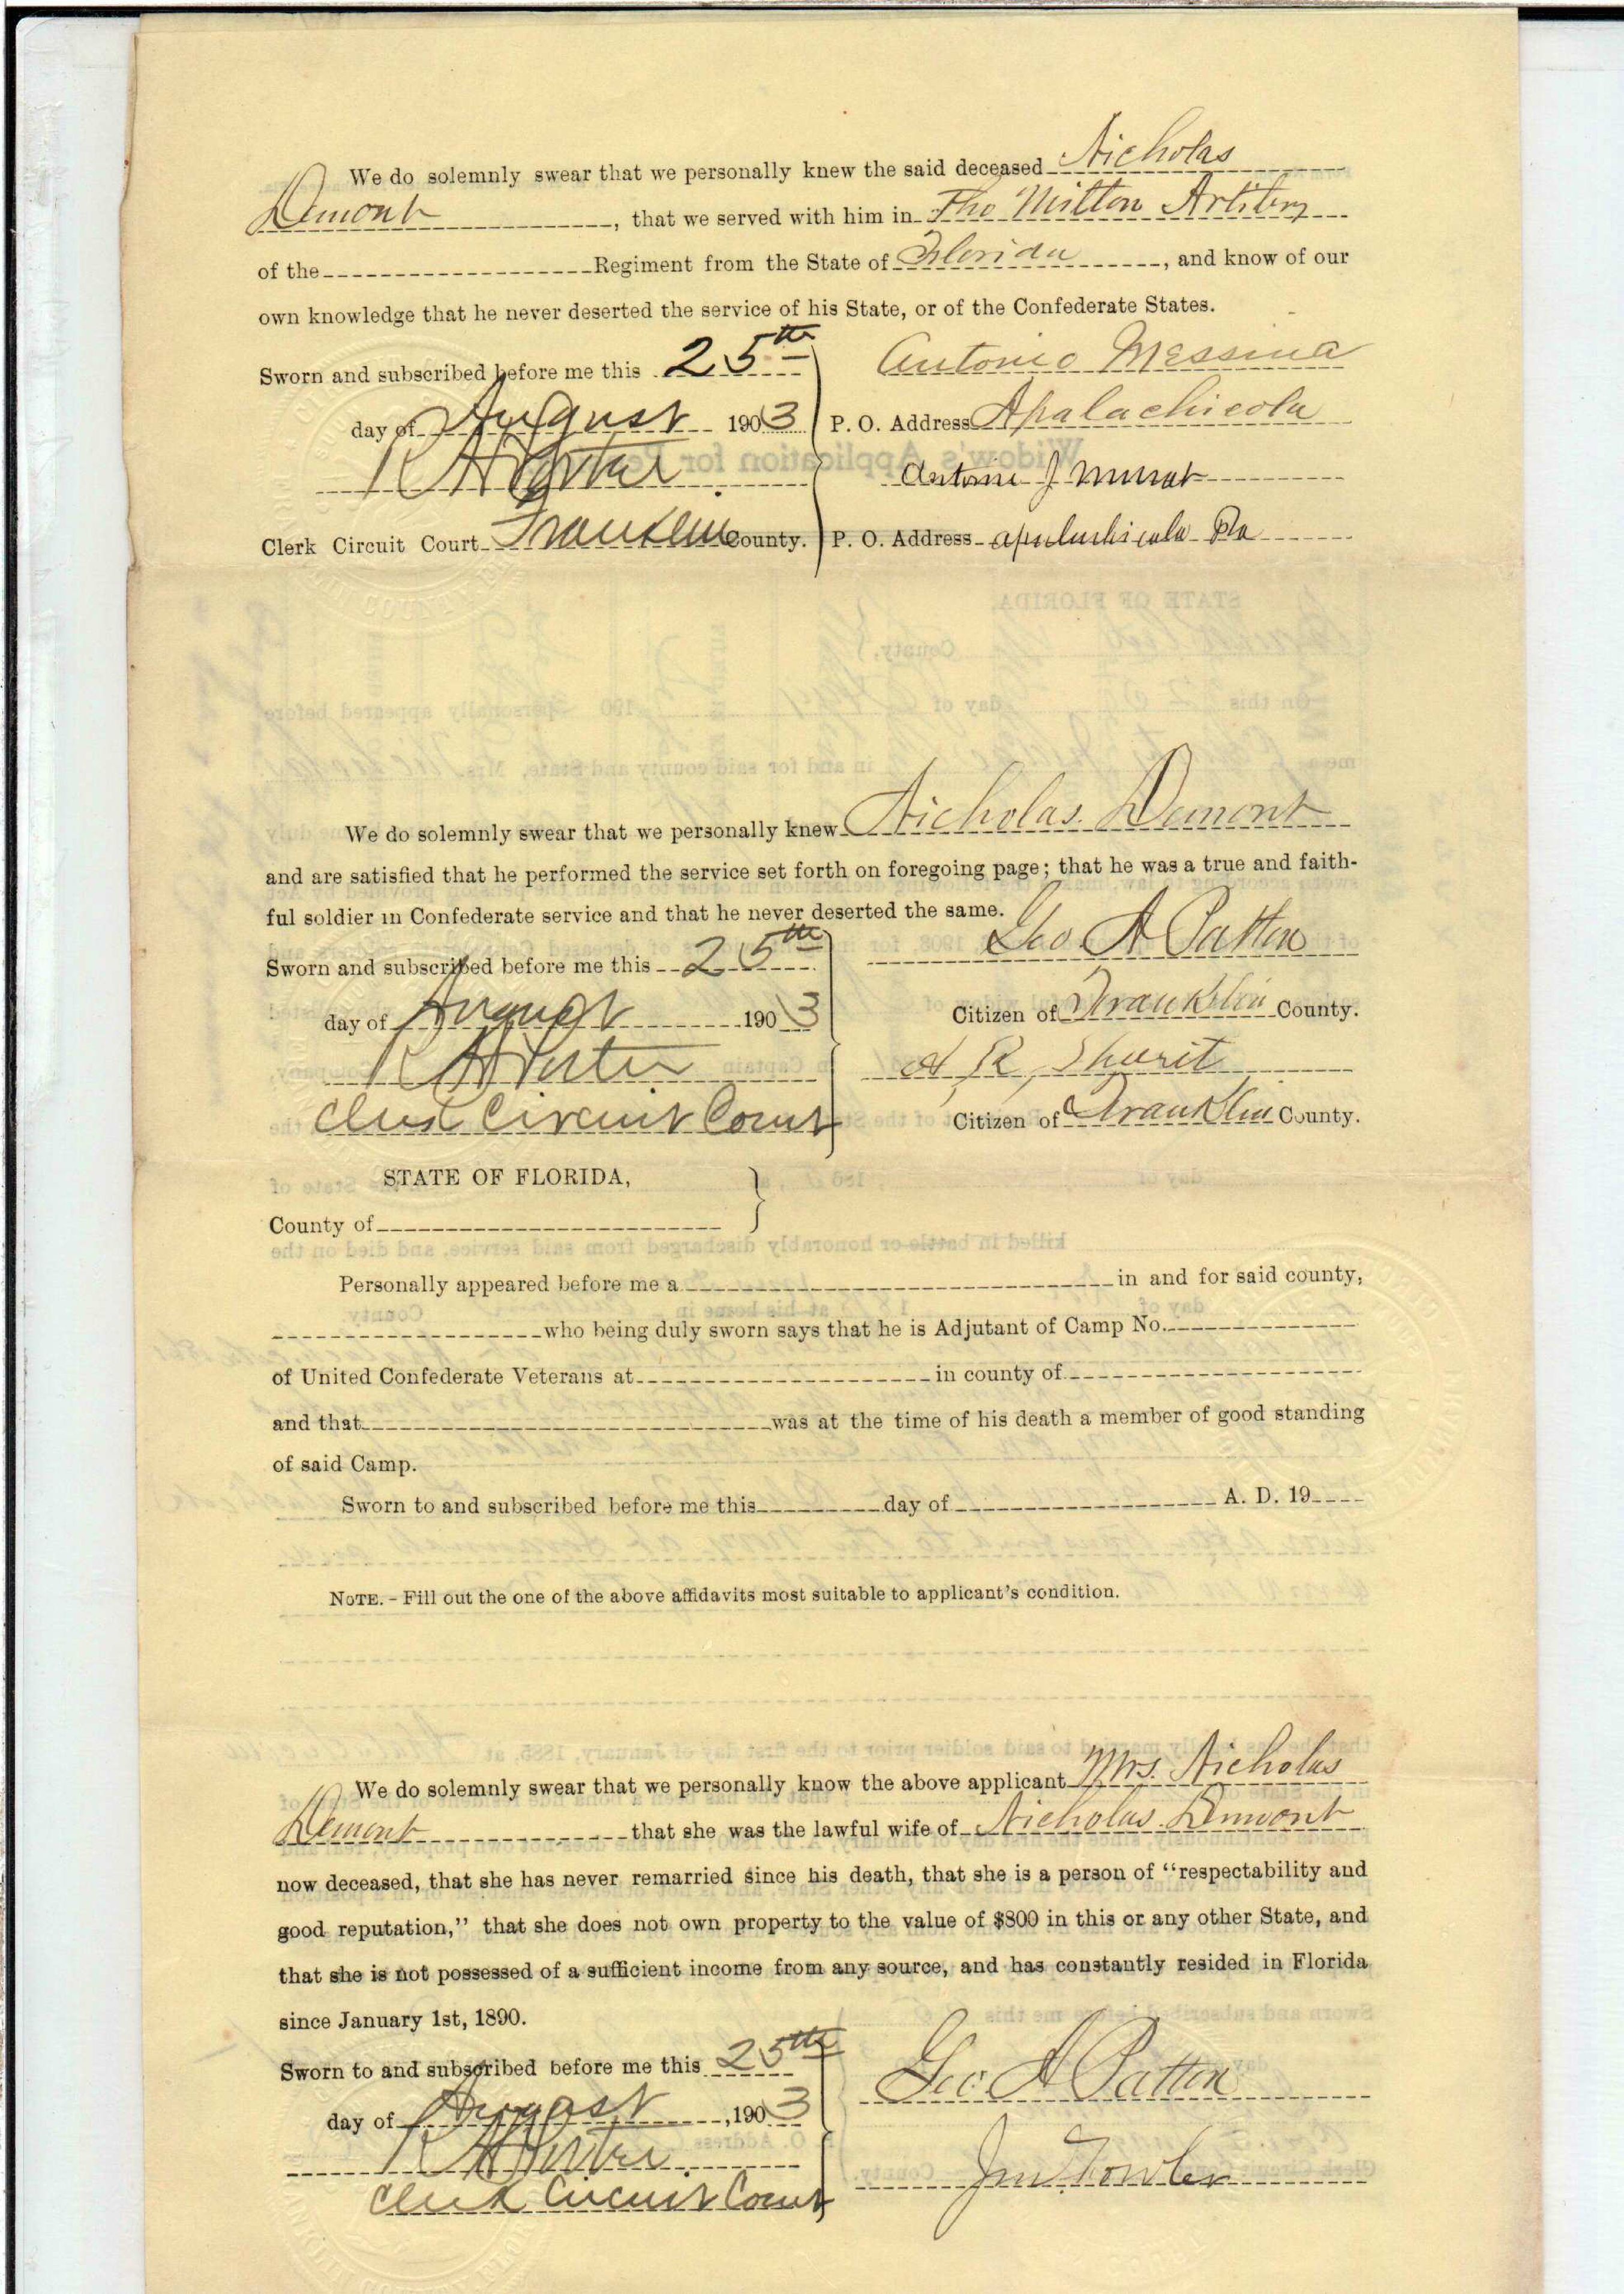 We do solemnly swear that we personally knew the said deceased Nicholas
Demont, that we served with him in The Milton Artilery
of the Regiment from the State of Florida, and know of our
own knowledge that he never deserted the service of his State, or of the Confederate States.
Sworn and subscribed before me this 25th
Antonio Messina
day of August 1903
P. O. Address Apalachicola
R H Porter
Antoine J Murat
Clerk Circuit Court Franklin County.
P. O. Address apalachicola Fla
Widow's Application for
STATE OF FLORIDA,
County,
We do solemnly swear that we personally knew Nicholas Demont
and are satisfied that he performed the service set forth on foregoing page; that he was a true and faith-
ful soldier in Confederate service and that he never deserted the same.
Sworn and subscribed before me this 25th
Geo A Patton
day of August 1903
Citizen of Franklin County.
R H Porter
A R, Shurit
Clerk Circuit Court
Citizen of Franklin County.
STATE OF FLORIDA,
County of
Personally appeared before me a in and for said county,
who being duly sworn says that he is Adjutant of Camp No.
of United Confederate Veterans at in county of
and that was at the time of his death a member of good standing
of said Camp.
Sworn to and subscribed before me this day of A. D. 19
NOTE. - Fill out the one of the above affidavits most suitable to applicant's condition.
We do solemnly swear that we personally know the above applicant Mrs. Nicholas
Demont that she was the lawful wife of Nicholas Demont
now deceased, that she has never remarried since his death, that she is a person of "respectability and
good reputation," that she does not own property to the value of $800 in this or any other State, and
that she is not possessed of a sufficient income from any source, and has constantly resided in Florida
since January 1st, 1890.
Sworn to and subscribed before me this 25th
Geo A Patton
day of August, 1903
R H Porter
Jno Fowler
Clerk Circuit Court